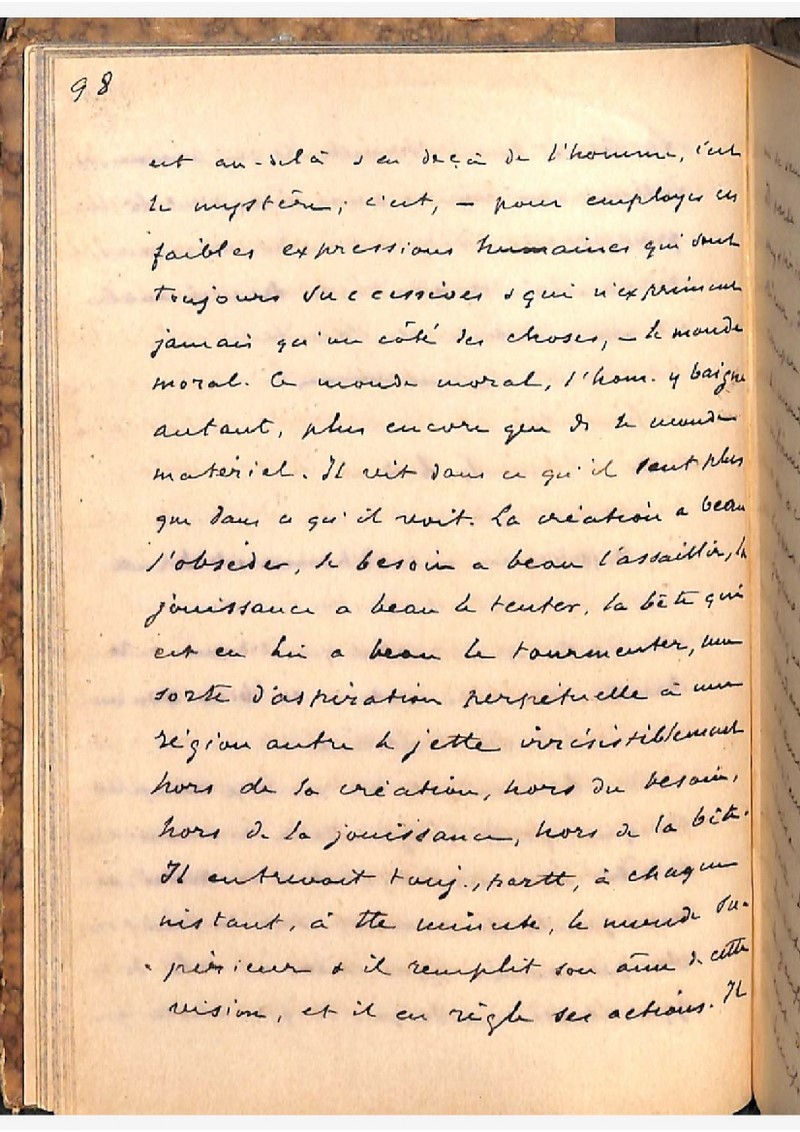 98
est au-delà & en deçà de l'homme, c'est
le mystère; c'est, – pour employer ces
faibles expressions humaines qui sont
toujours successives & qui n'expriment
jamais qu'un côté des choses, – le monde
moral. Ce monde moral, l'hom. y baigne
autant, plus encore que ds le monde
matériel. Il vit dans ce qu'il sent plus
que dans ce qu'il voit. La création a beau
l'obséder, le besoin a beau l'assaillir, la
jouissance a beau le tenter, la bête qui
est en lui a beau le tourmenter, une
sorte d'aspiration perpétuelle à une
région autre le jette irrésistiblement
hors de la création, hors du besoin,
hors de la jouissance, hors de la bête.
Il entrevoit touj., partt, à chaque
instant, à tte minute, le monde su-
périeur & il remplit son âme de cette
vision, et il en règle ses actions. Il